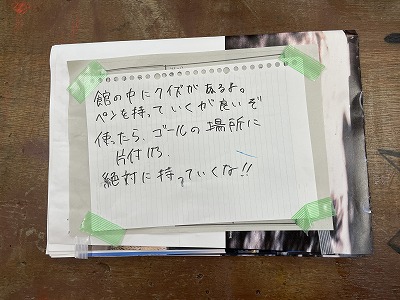 館の中にクイズがあるよ。
ペンを持っていくが良いぞ
使ったら、ゴールの場所に
片付けろ
絶対に持っていくな!!